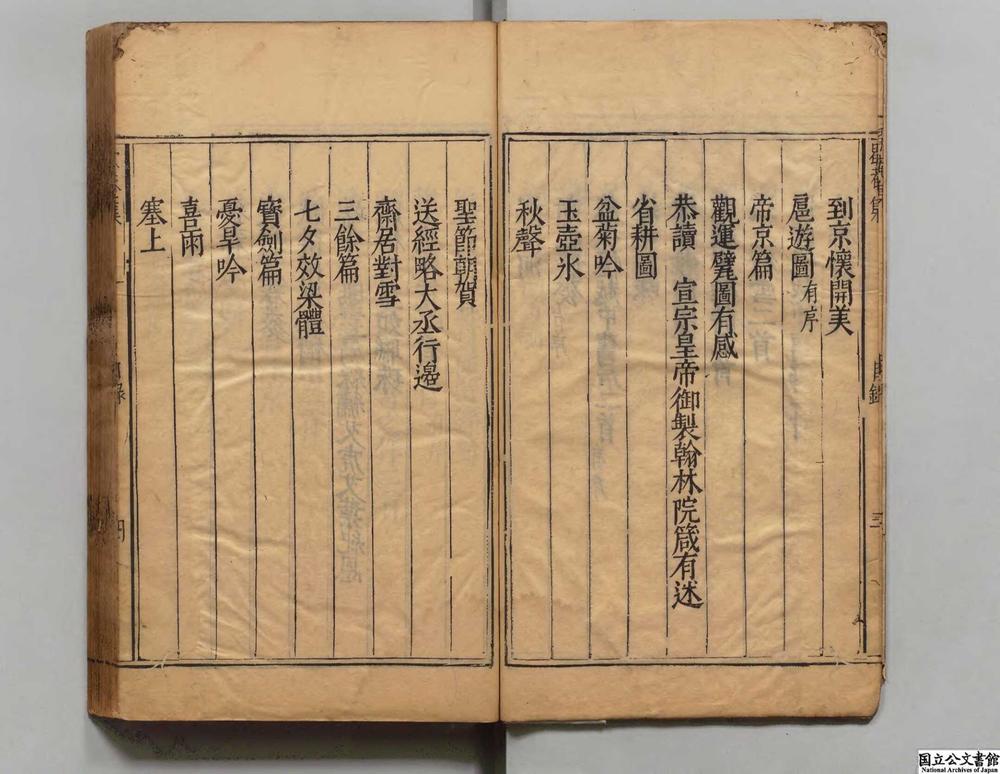 到京懷開美
扈遊圖有序
帝京篇
觀運甓圖有感
恭讀　宣宗皇帝御製翰林院箴有述
省耕圖
盆菊吟
玉壺氷
秋聲
聖節朝賀
送經略大丞行邊
齋居對雪
三餘篇
七夕效梁體
寶劍篇
憂旱吟
喜雨
塞上
国立公文書館
National Archives of Japan